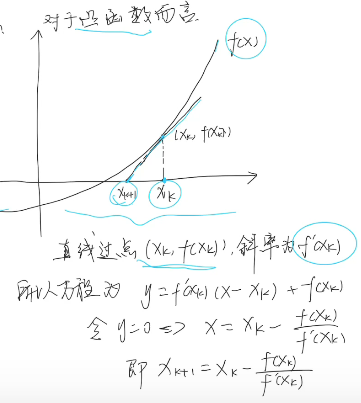 对于凸函数而言
f(x)
(xk, f(xk))
xk+1 xk
直线过点 (xk, f(xk)), 斜率为 f'(xk)
所以方程为 y = f'(xk)(x - xk) + f(xk)
令 y=0 <=> x = xk - f(xk)/f'(xk)
即 xk+1 = xk - f(xk)/f'(xk)